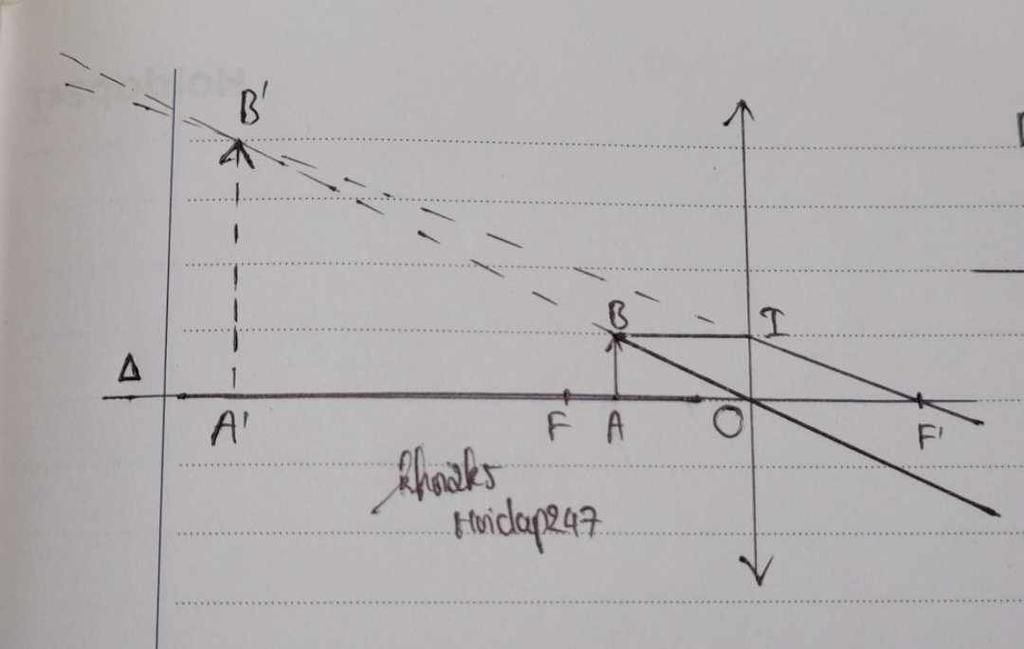 B'
B
I
Δ
A'
F
A
O
F'
khoaks
Hoidap247